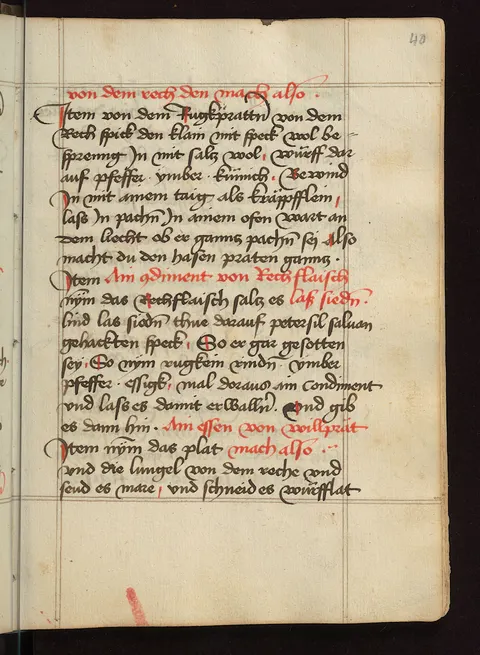 40
von dem rech den mach also .
Item von dem Rugkprattn von dem
Rech spick den klain mit speck wol be=
spreng Jn mit saltz wol, würff dar
auf pfeffer . ymber . kümich . Bewind
Jn mit ainem taig als kräpfflein,
lass Jn pachn Jn ainem ofen wart an
dem liecht ob er gantz pachn sej also
macht du den hasen praten gantz .
Item Ain condiment von Rechflaisch
nym das Rechflaisch saltz es laß siedn .
vnd las siedn thue darauf petersil saluan
gehackten speck, So er gar gesotten
sey, So nym rugkein rindn . ymber
pfeffer . essigk, mal daraus ain Condiment
vnd lass es damit erwalln . Vnd gib
es dann hin . Ain essen von willprät
Item nym das plat mach also ...
vnd die lungel von dem reche vnd
seud es mare, vnd schneid es würfflat